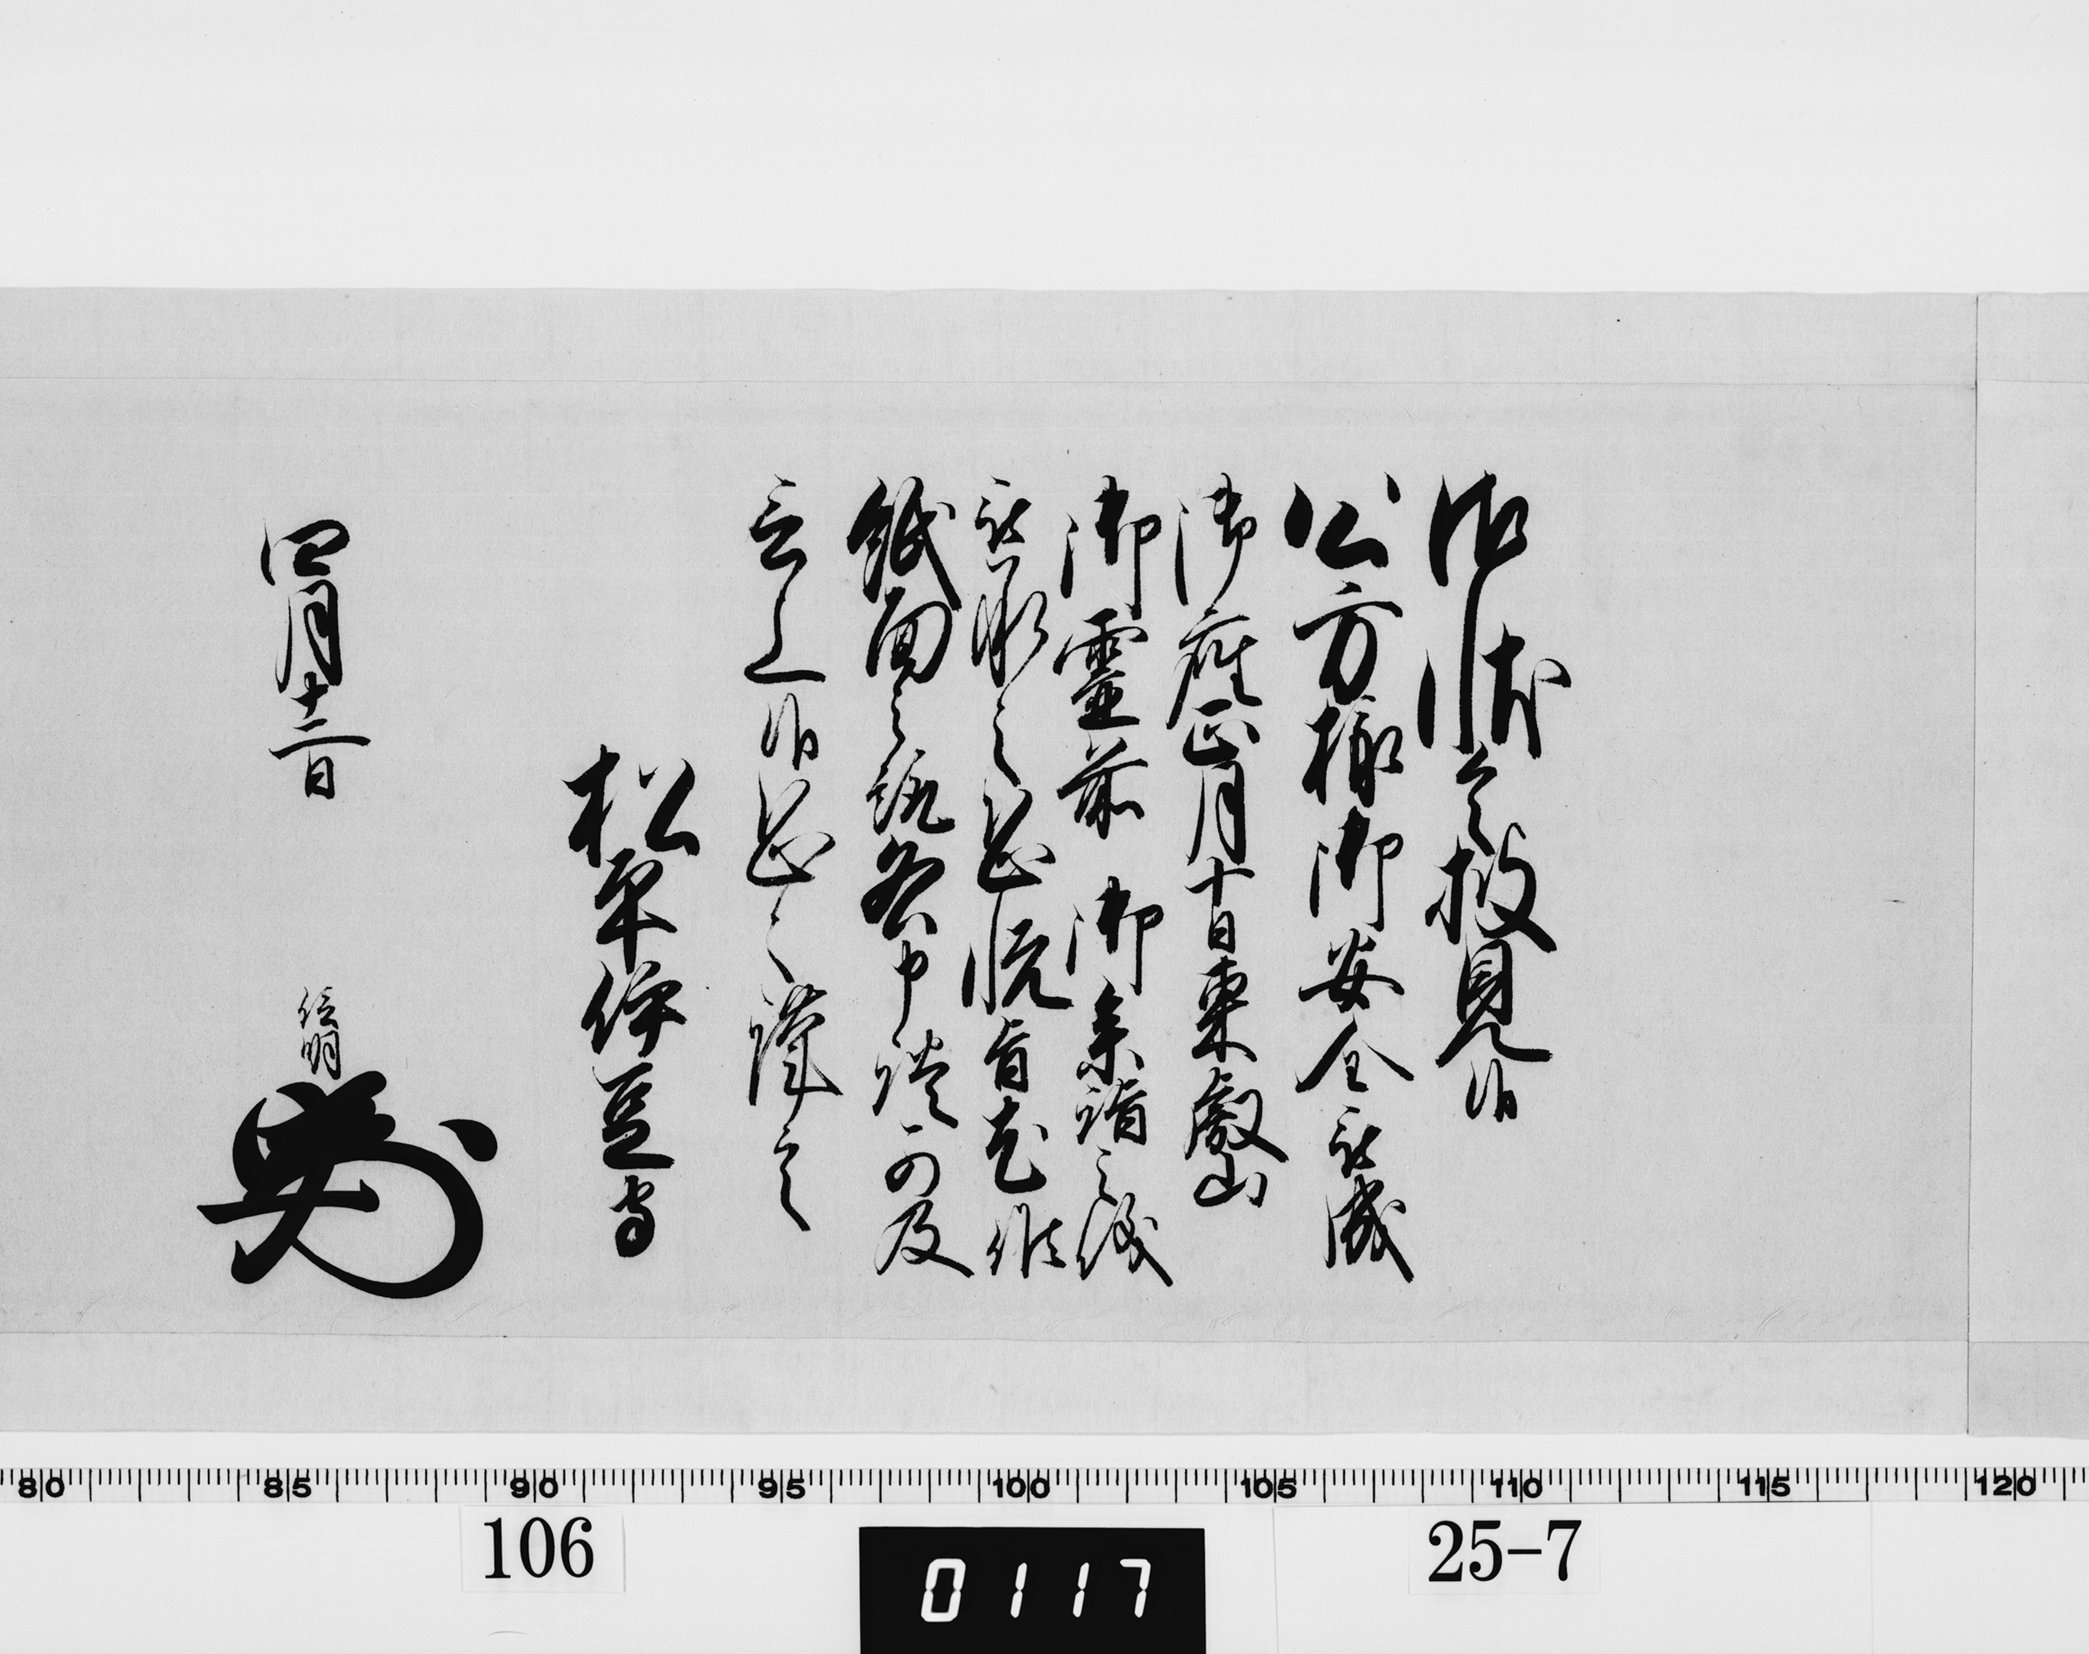 御状令披見候
公方様御安全被成
御座正月十日東叡山
御靈前 御参詣之儀
被承之恐悦旨尤候
紙面之趣各申談可及
言上候恐々謹言
松平伊豆守
四月十二日 信明
80 85 90 95 100 105 110 115 120
106 0117 25-7